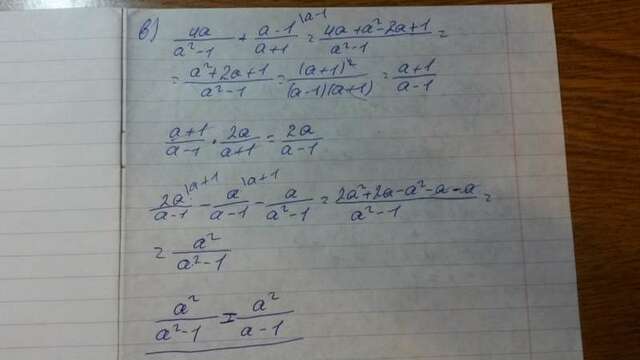 в) 4a/(a²-1) + (a-1)/(a+1) \a-1 = (4a+a²-2a+1)/(a²-1) =
= (a²+2a+1)/(a²-1) = (a+1)²/((a-1)(a+1)) = (a+1)/(a-1)
(a+1)/(a-1) · 2a/(a+1) = 2a/(a-1)
2a/(a-1) \a+1 - a/(a-1) \a+1 - a/(a²-1) = (2a²+2a-a²-a-a)/(a²-1) =
= a²/(a²-1)
a²/(a²-1) = a²/(a-1)